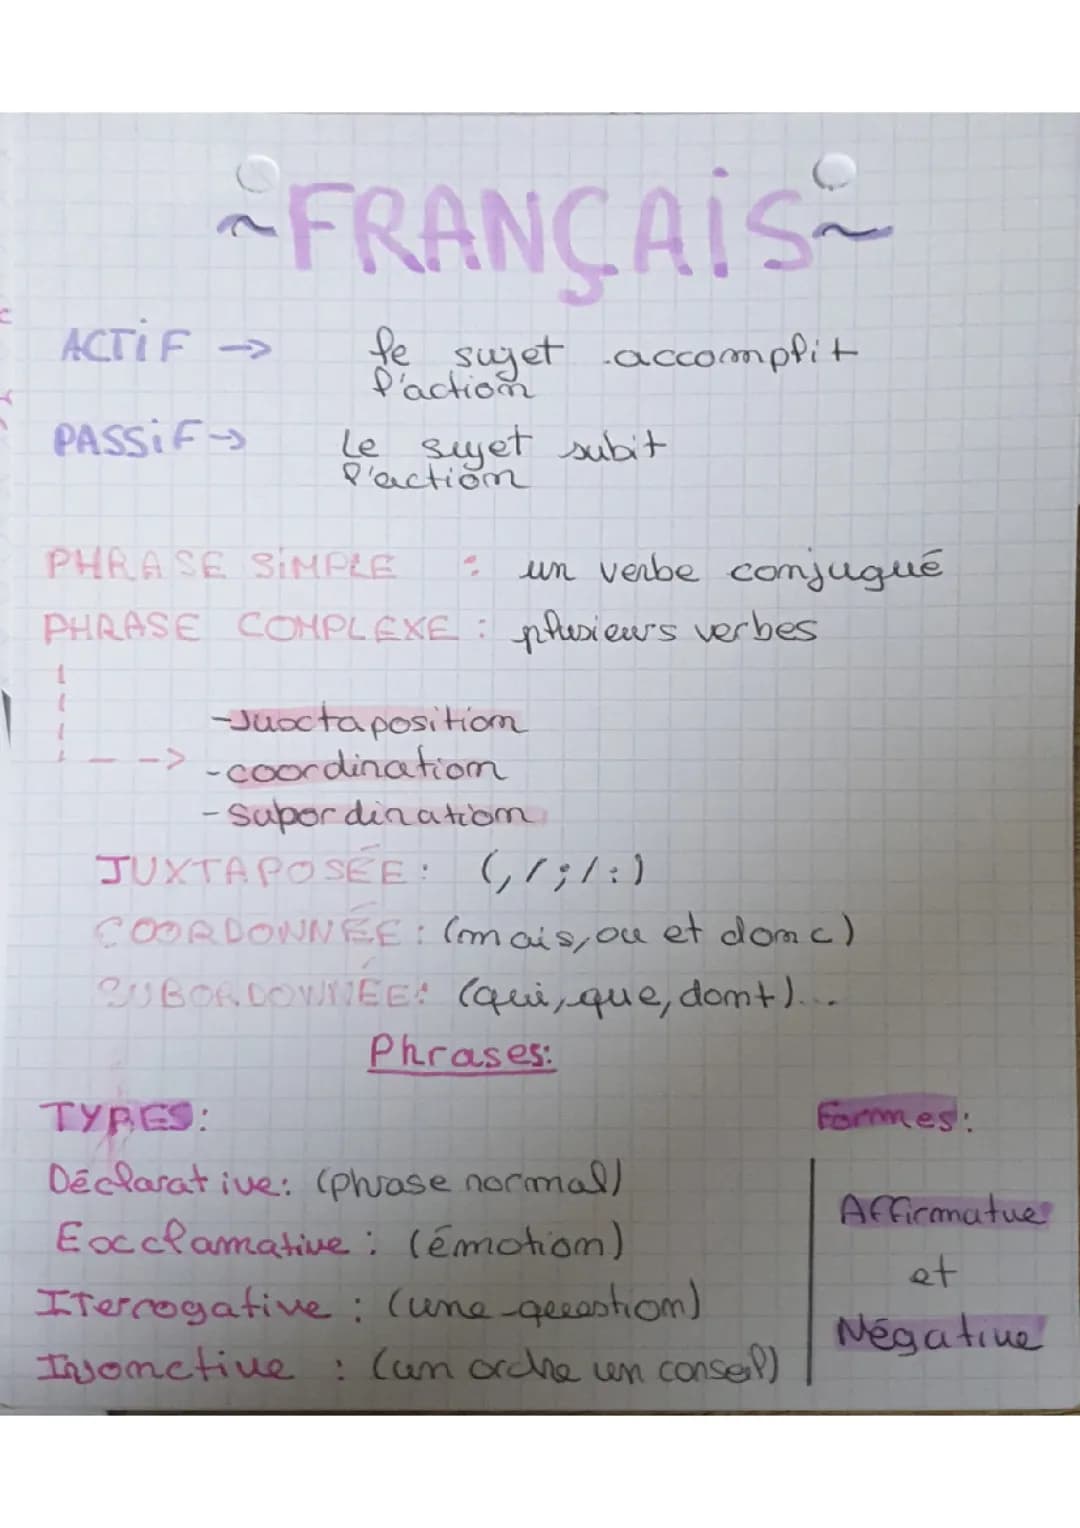 ~FRANÇAIS~
ACTIF → le sujet accomplit
l'action
PASSIF → Le sujet subit
l'action
PHRASE SIMPLE : un verbe conjugué
PHRASE COMPLEXE : plusieurs verbes
-Juxtaposition
-coordination
-Subordination
JUXTAPOSÉE: (,/;/:)
COORDONNÉE: (mais, ou et donc)
SUBORDONNÉE: (qui, que, dont)...
Phrases:
TYPES:
Formes:
Déclarative: (phrase normal)
Exclamative: (émotion)
ITerrogative: (une question)
Injonctive : (un ordre un conseil)
Affirmatue
et
Négative